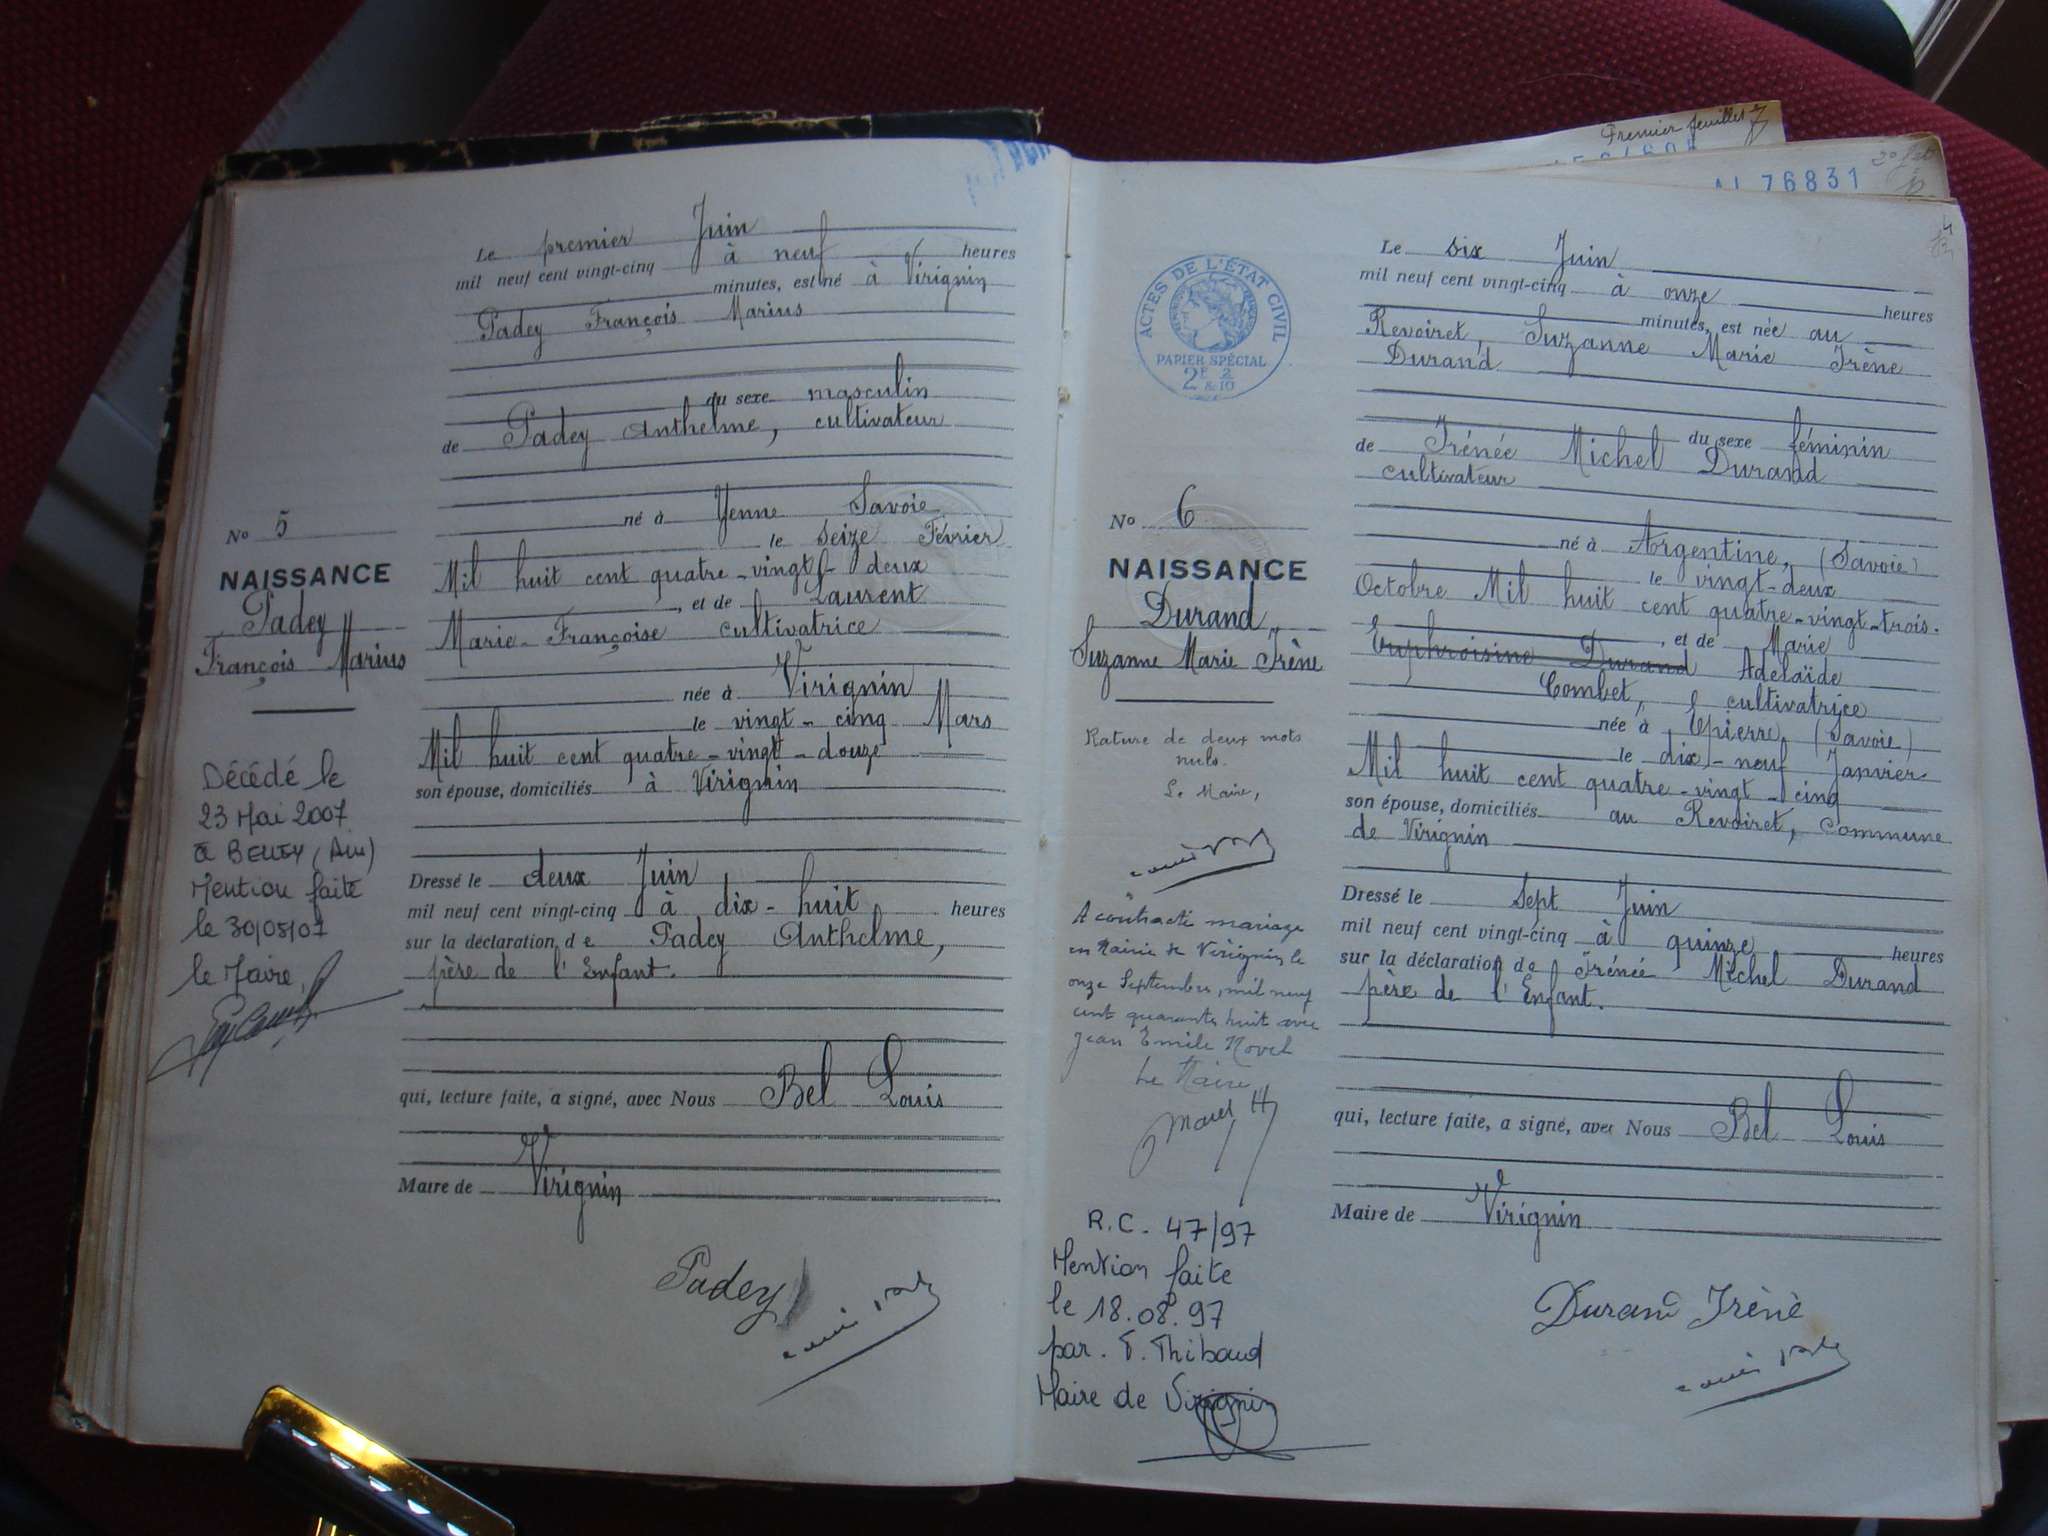 Le premier Juin
mil neuf cent vingt-cinq à neuf heures
minutes, est né à Virignin
Padey François Marius
du sexe masculin
de Padey Anthelme, cultivateur
né à Yenne Savoie
le seize Février
Mil huit cent quatre-vingt-deux
, et de Laurent
Marie-Françoise cultivatrice
née à Virignin
le vingt-cinq Mars
Mil huit cent quatre-vingt-douze
son épouse, domiciliés à Virignin
Dressé le deux Juin
mil neuf cent vingt-cinq à dix-huit heures
sur la déclaration de Padey Anthelme,
père de l'Enfant.
qui, lecture faite, a signé, avec Nous Bel Louis
Maire de Virignin
Padey
No 5
NAISSANCE
Padey
François Marius
Décédé le
23 Mai 2007
à BELLEY (Ain)
Mention faite
le 30/05/07
le Maire,
Premier feuillet
AL 76831
ACTES DE L'ÉTAT CIVIL
PAPIER SPÉCIAL
2F 2
& 10
Le six Juin
mil neuf cent vingt-cinq à onze heures
minutes, est née au
Revoiret, Suzanne Marie Irène
Durand
du sexe féminin
de Irénée Michel Durand
cultivateur
né à Argentine, (Savoie)
le vingt-deux
Octobre Mil huit cent quatre-vingt-trois.
, et de Marie
Euphroisine Durand Adelaïde
Combet, cultivatrice
née à Epierre, (Savoie)
le dix-neuf Janvier
Mil huit cent quatre-vingt-cinq
son épouse, domiciliés au Revoiret, commune
de Virignin
Dressé le Sept Juin
mil neuf cent vingt-cinq à quinze heures
sur la déclaration de Irénée Michel Durand
père de l'Enfant.
qui, lecture faite, a signé, avec Nous Bel Louis
Maire de Virignin
Durand Irèné
No 6
NAISSANCE
Durand
Suzanne Marie Irène
Rature de deux mots
nuls.
Le Maire,
A contracté mariage
en Mairie de Virignin le
onze Septembre, mil neuf
cent quarante huit avec
Jean Emile Novel
Le Maire
R.C. 47/97
Mention faite
le 18.08.97
par. T. Thibaud
Maire de Virignin